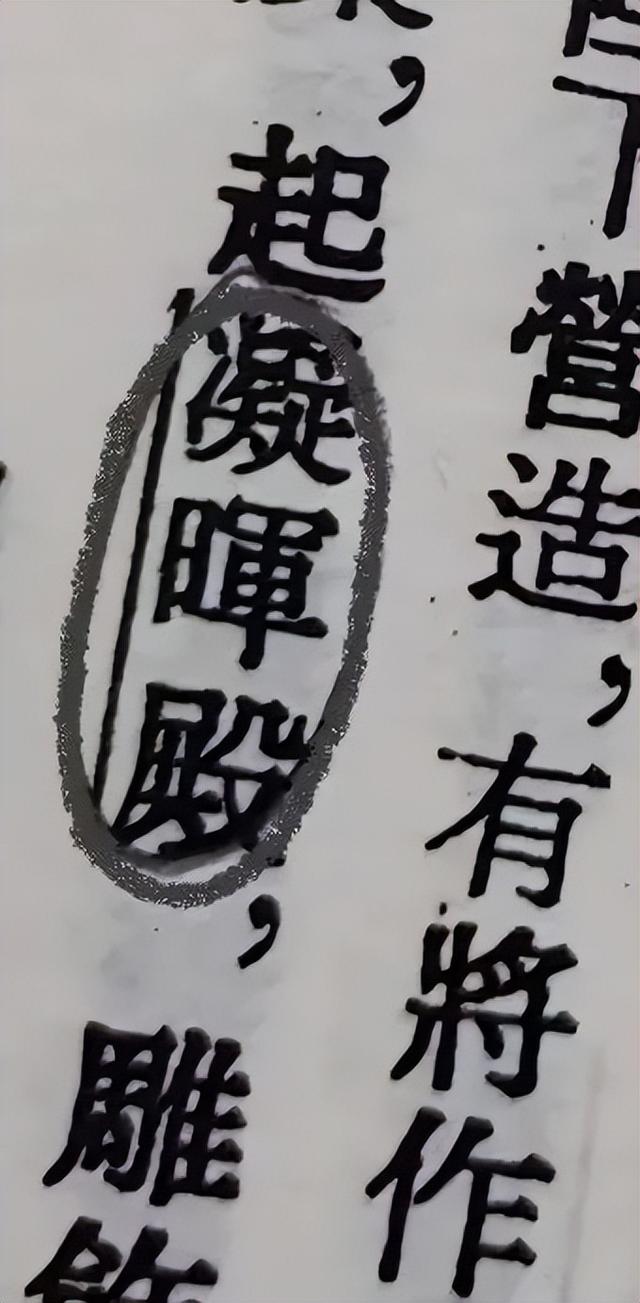 下營造，有將作
，起凝暉殿，雕飾